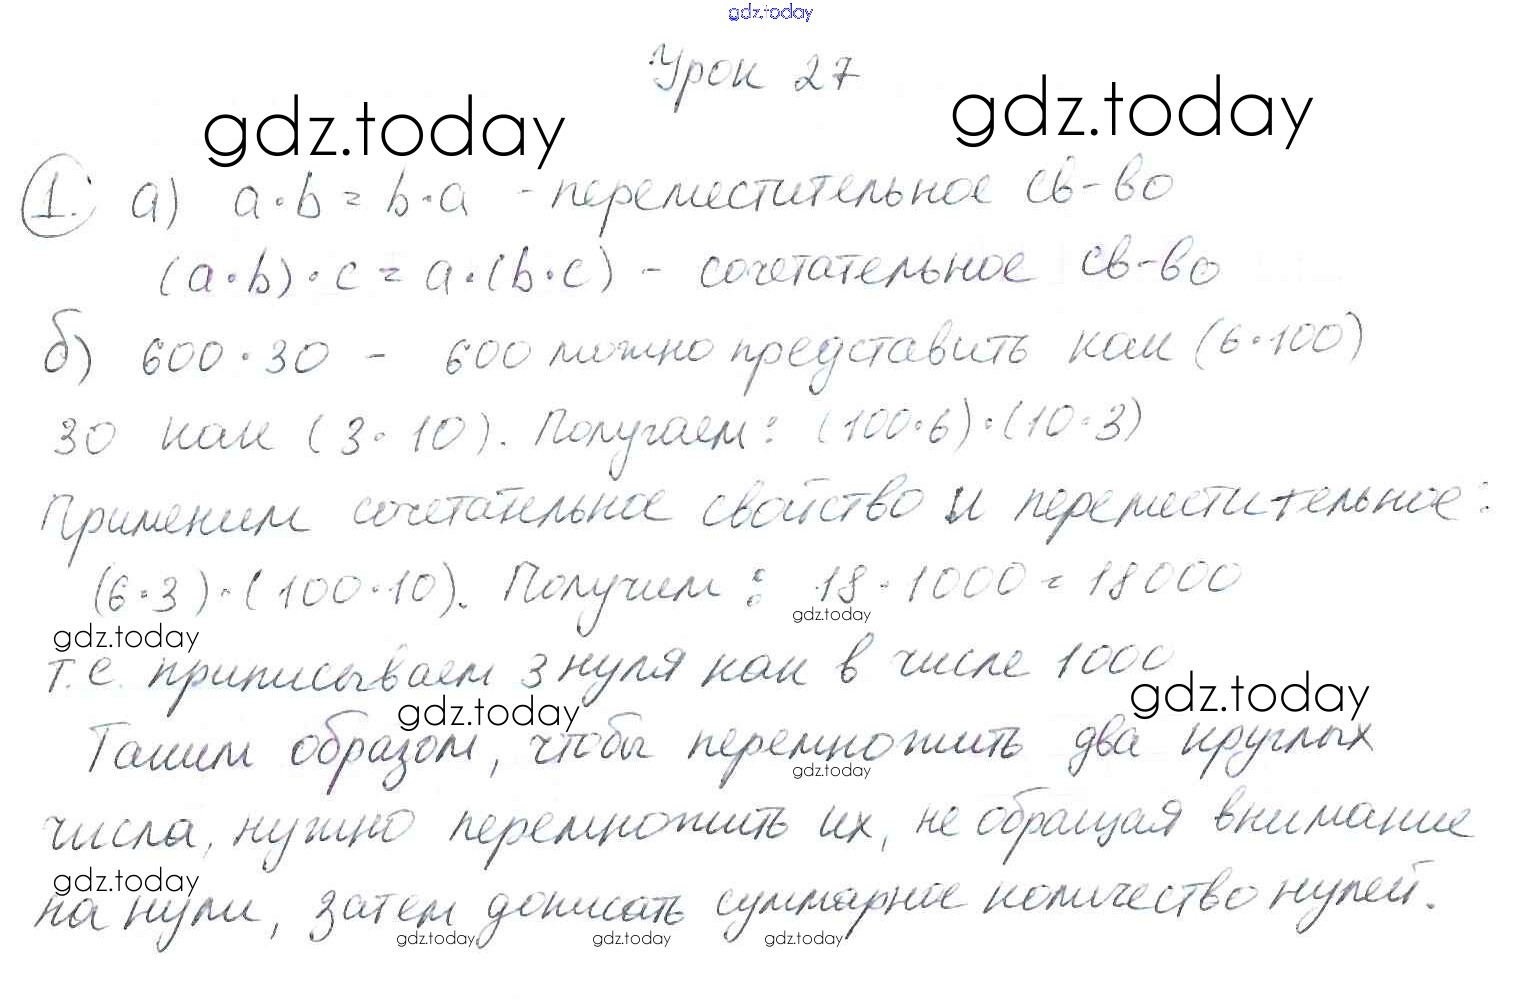 gdz.today
Урок 27
gdz.today gdz.today
1. а) a·b = b·a - переместительное св-во
(a·b)·c = a·(b·c) - сочетательное св-во
б) 600·30 - 600 можно представить как (6·100)
30 как (3·10). Получаем: (100·6)·(10·3)
Применим сочетательное свойство и переместительное:
(6·3)·(100·10). Получим: 18·1000 = 18000
gdz.today gdz.today
т.е. приписываем 3 нуля как в числе 1000
gdz.today gdz.today
Таким образом, чтобы перемножить два круглых
gdz.today
числа, нужно перемножить их, не обращая внимание
gdz.today
на нули, затем дописать суммарное количество нулей.
gdz.today gdz.today gdz.today